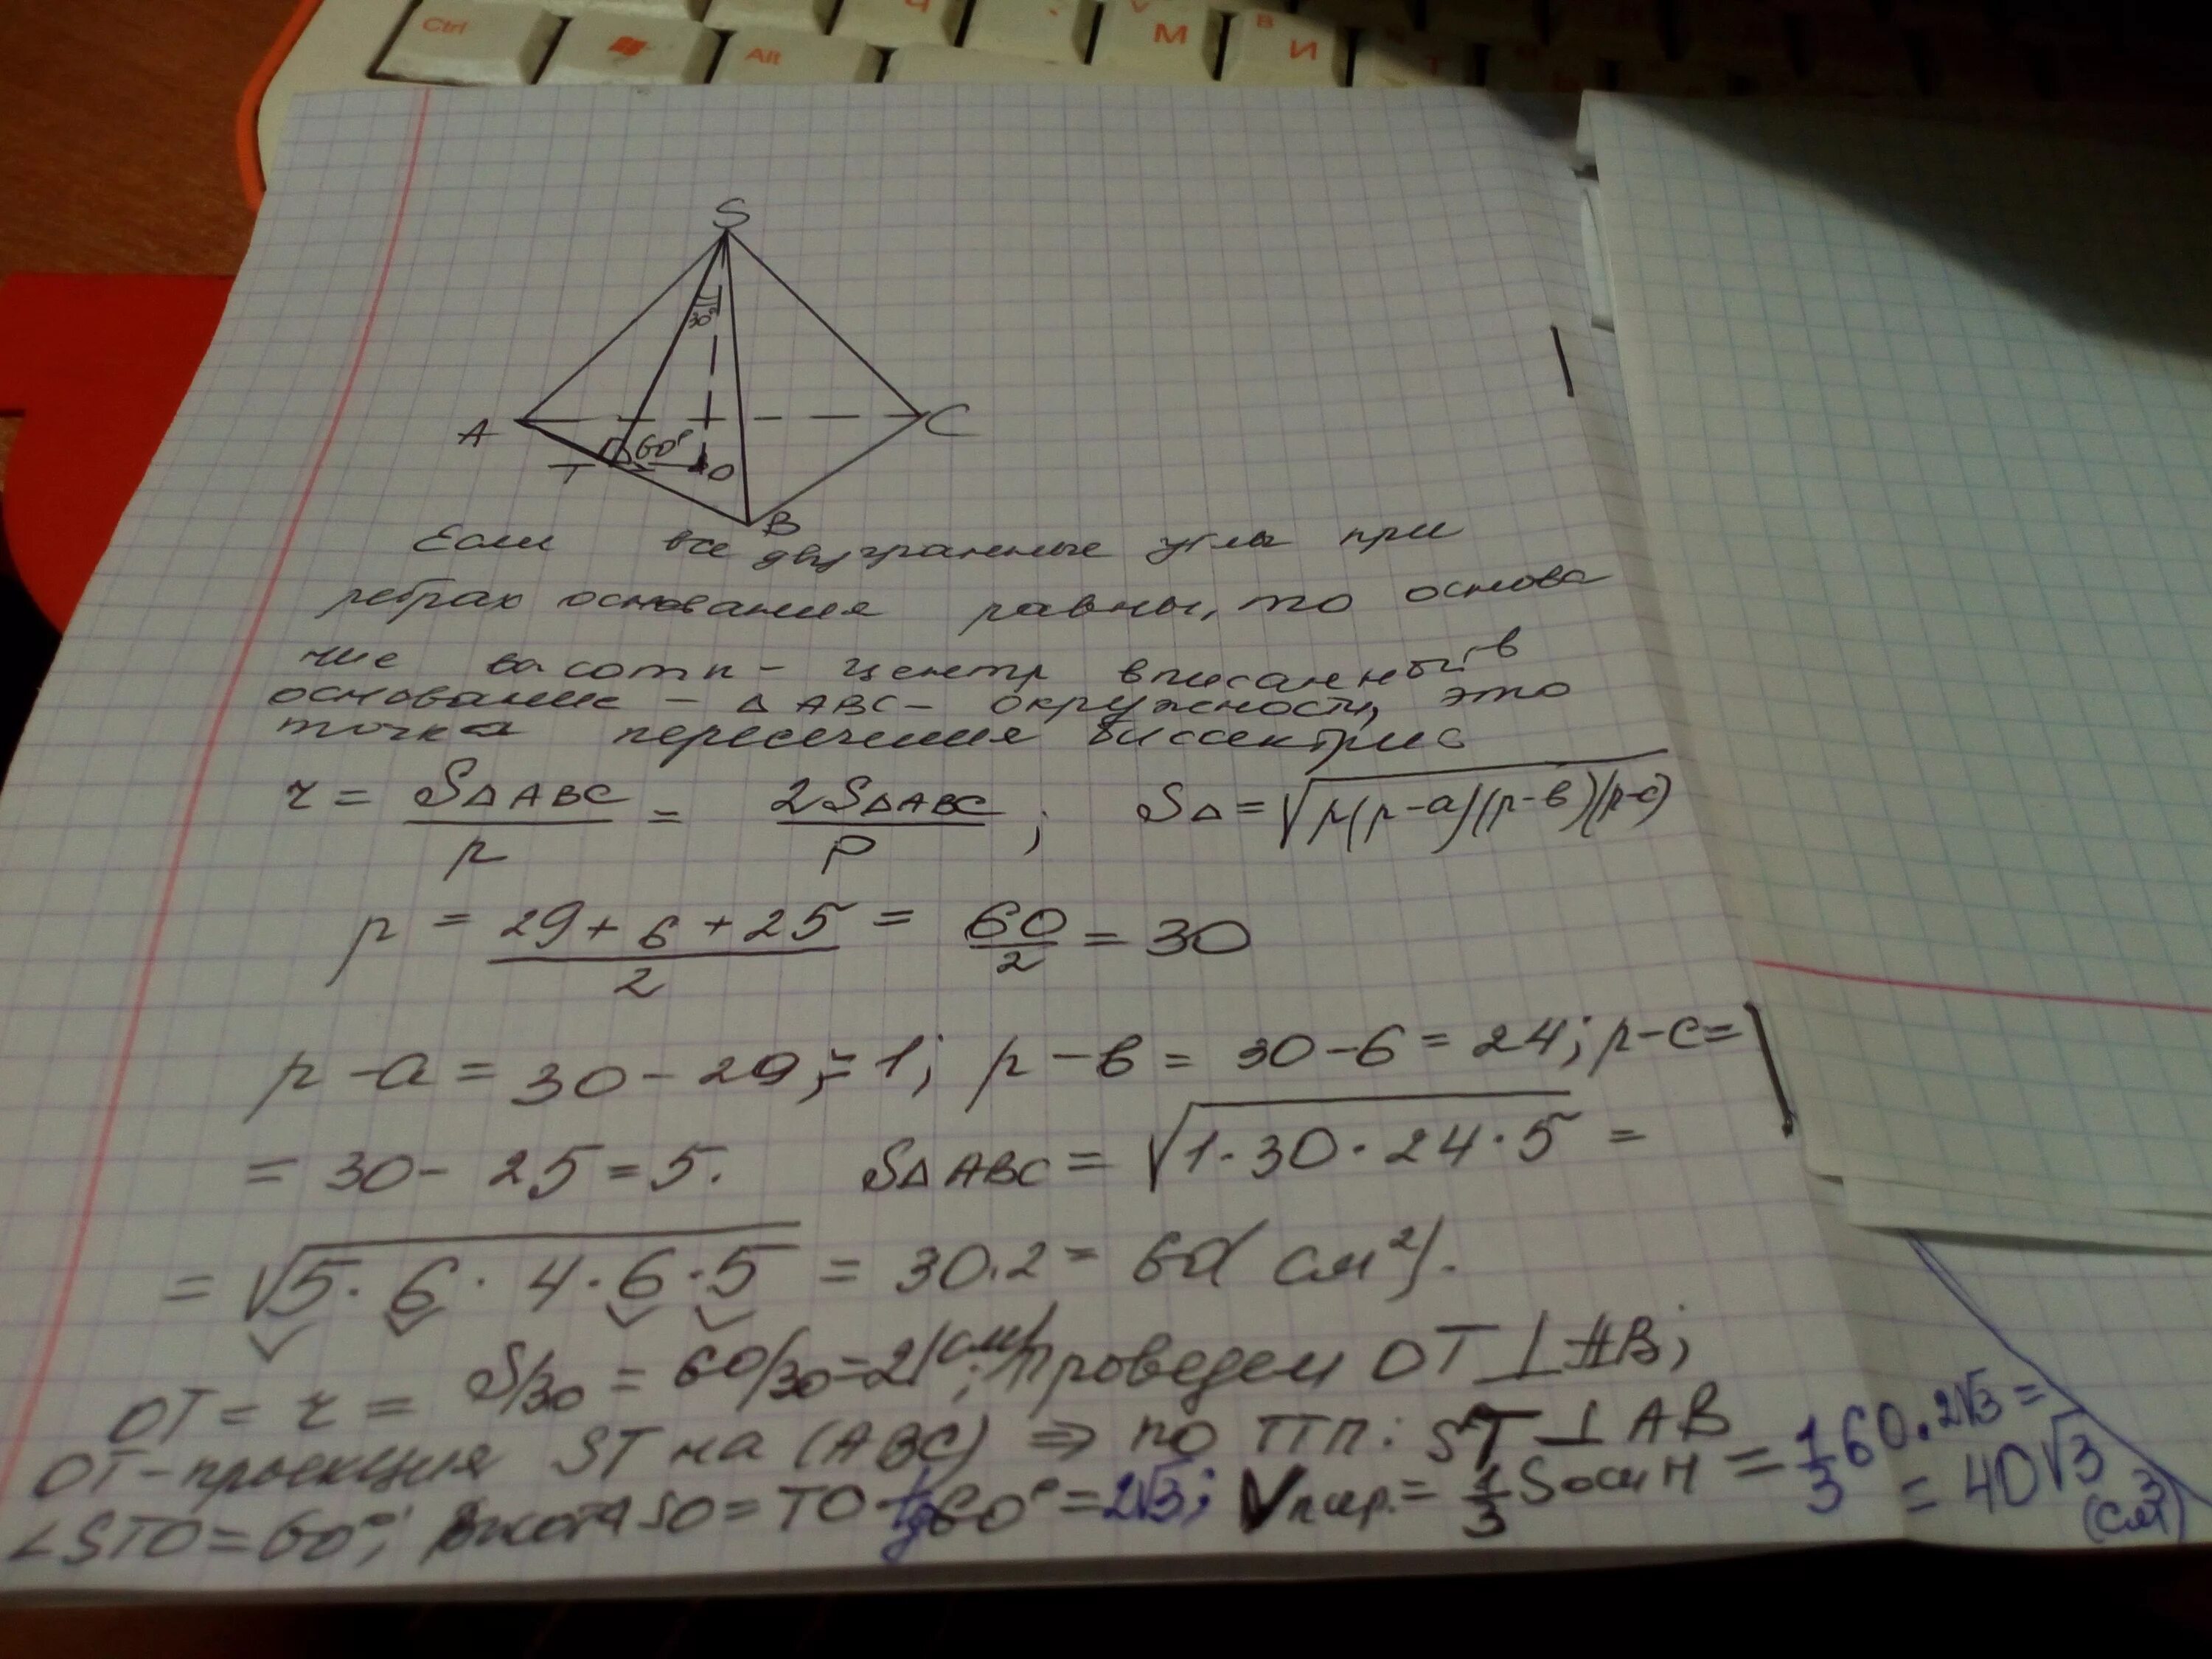 Ctrl
Alt
Ч
М
В
И
Т
S
30°
A
C
60°
T
O
B
Если все двугранные углы при
ребрах основания равны, то основа
ние высоты - центр вписанный в
основание - △ABC - окружности, это
точка пересечения биссектрис
r = S△ABC/p = 2S△ABC/P ; S△ = √p(p-a)(p-в)(p-c)
p = (29+6+25)/2 = 60/2 = 30
p-a = 30-29 = 1; p-в = 30-6 = 24; p-c =
= 30-25 = 5. S△ABC = √1·30·24·5 =
= √5·6·4·6·5 = 30·2 = 60 (см²).
OT = r = S/30 = 60/30 = 2(см); Проведем OT⊥AB;
OT-проекция ST на (ABC) ⇒ по ТТП: ST⊥AB
∠STO = 60°; Высота SO = TO·tg60° = 2√3; Vпир. = 1/3 Sосн H = 1/3 60·2√3 =
= 40√3 (см³)